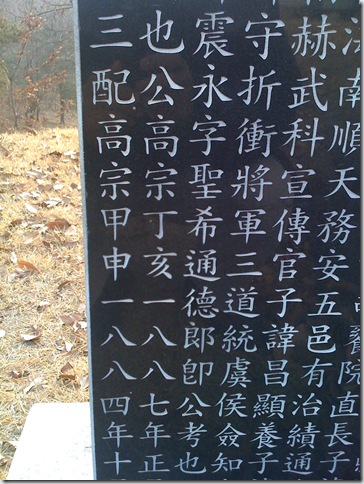 院直長子
南順天務安五邑有治績通
赫武科宣傳官子諱昌顯養子
守折衝將軍三道統虞侯僉知
震永字聖希通德郎卽公考也
也公高宗丁亥一八八七年正
三配高宗甲申一八八四年十